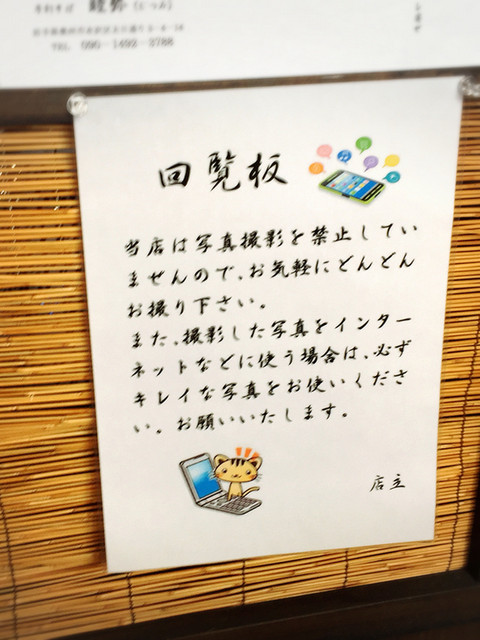 TEL 090-1492-3788
回覧板
当店は写真撮影を禁止してい
ませんので、お気軽にどんどん
お撮り下さい。
また、撮影した写真をインター
ネットなどに使う場合は、必ず
キレイな写真をお使いくださ
い。お願いいたします。
店主